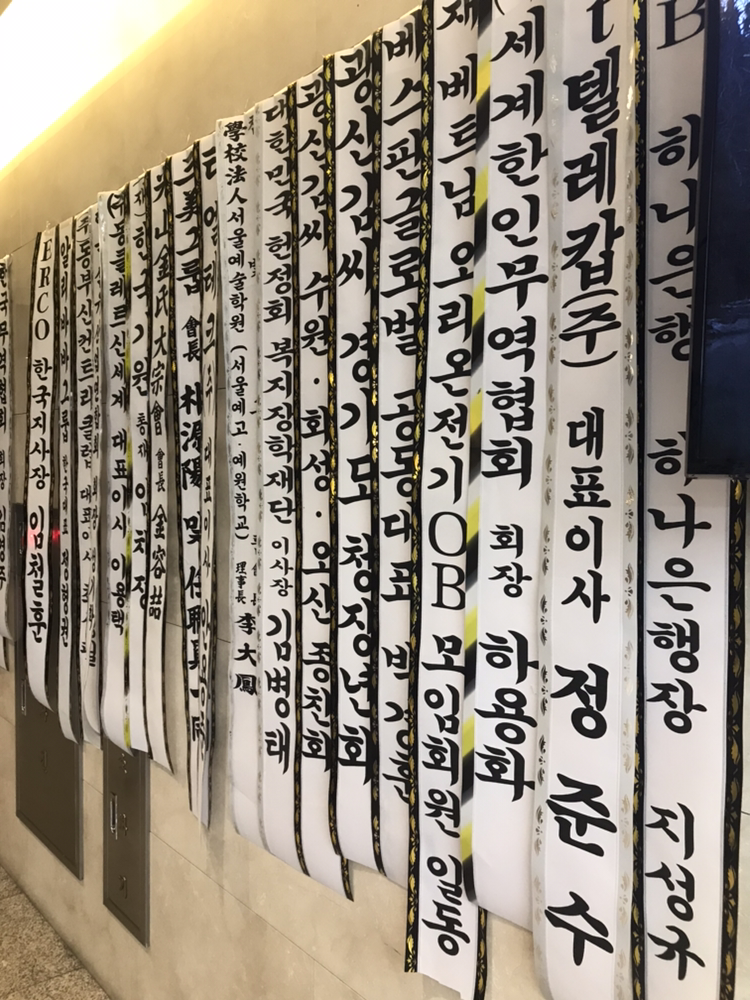 한국무역협회 회장
ERCO 한국지사장 임철훈
알리바바그룹 한국대표 정형권
주)동부신컨트리클럽 대표이사
(주)동들레르신세계 대표이사 이용택
재)한국기원 총재 임채정
光山金氏大宗會 會長 金容喆
三美그룹 會長
대표이사
學校法人서울예술학원 (서울예고·예원학교) 理事長 李大鳳
대한민국 헌정회 복지장학재단 이사장 김병태
광산김씨 수원·화성·오산 종친회
광산김씨 경기도 청장년회
베스핀글로벌 공동대표
재 베트남 오리온전기OB 모임회원 일동
세계한인무역협회 회장 하용화
t텔레캅(주) 대표이사 정준수
B 하나은행 하나은행장 지성규